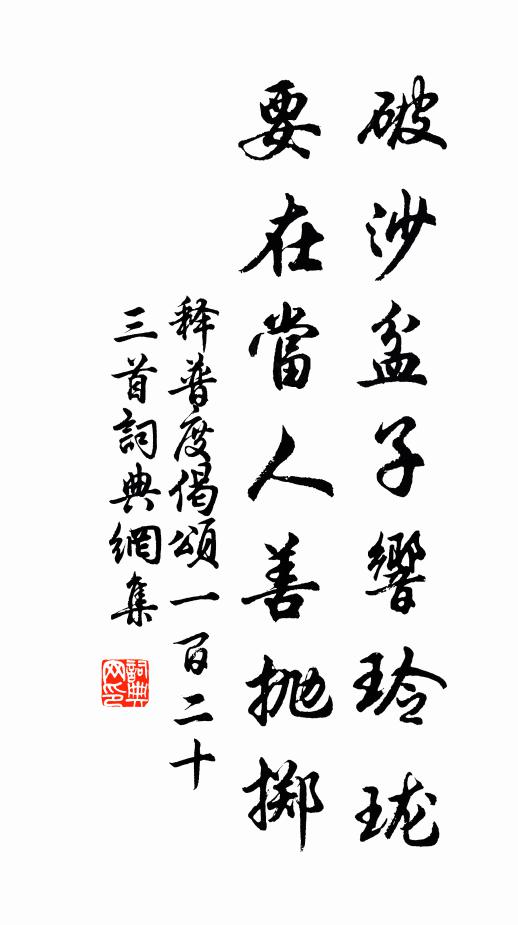 破沙盆子響玲珑
要在當人善抛掷
释普度偈頌一百二十
三首詞典網集
詞典
网印